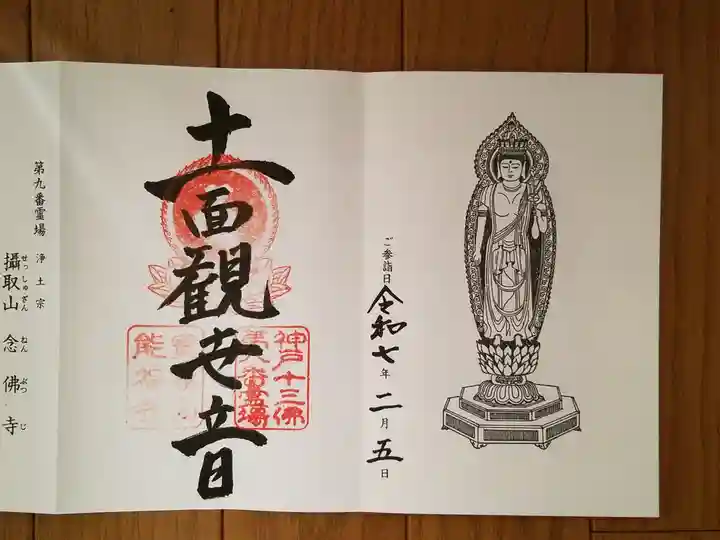 ご参詣日
令和七年二月五日
十一面観世音
神戸十三佛
第八番霊場
能福寺
第九番霊場 浄土宗
攝取山 念佛寺
せっしゅざん ねんぶつじ